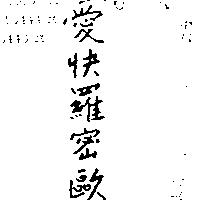 愛快羅密歐